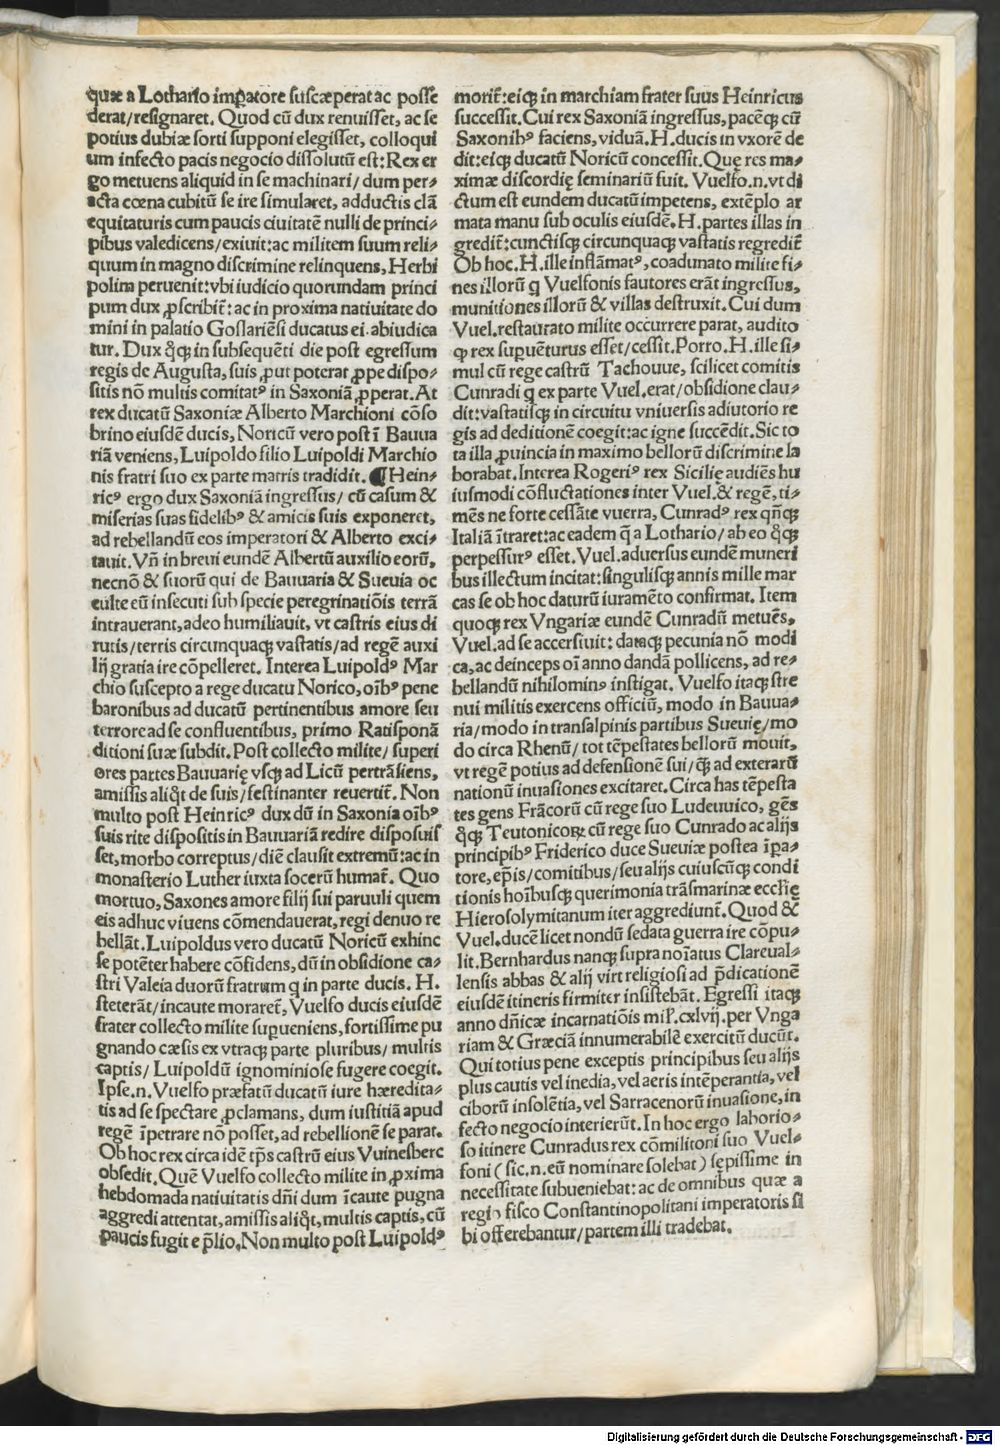 quæ a Lothario imꝑatore ſuſcæperat ac poſſe
derat/reſignaret. Quod cũ dux renuiſſet, ac ſe
potius dubiæ ſorti ſupponi elegiſſet, colloqui
um infecto pacis negocio diſſolutũ eſt: Rex er
go metuens aliquid in ſe machinari/ dum per⸗
acta cœna cubitũ ſe ire ſimularet, adductis clã
equitaturis cum paucis ciuitatẽ nulli de princi⸗
pibus valedicens/exiuit: ac militem ſuum reli⸗
quum in magno diſcrimine relinquens, Herbi
polim peruenit: vbi iudicio quorundam princi
pum dux ꝓſcribit̃: ac in proxima natiuitate do
mini in palatio Goſlariẽſi ducatus ei abiudica
tur. Dux q̊qꝫ in ſubſequẽti die poſt egreſſum
regis de Auguſta, ſuis ꝓut poterat ꝓpe diſpo⸗
ſitis nõ multis comitatꝰ in Saxoniã ꝓperat. At
rex ducatũ Saxoniæ Alberto Marchioni cõſo
brino eiuſdẽ ducis, Noricũ vero poſt ĩ Bauua
riã veniens, Luipoldo filio Luipoldi Marchio
nis fratri ſuo ex parte matris tradidit. ¶Hein⸗
ricꝰ ergo dux Saxoniã ingreſſus/ cũ caſum &
miſerias ſuas fidelibꝰ & amicis ſuis exponeret,
ad rebellandũ eos imperatori & Alberto exci⸗
tauit. Vñ in breui eundẽ Albertũ auxilio eorũ,
necnõ & ſuorũ qui de Bauuaria & Sueuia oc
culte eũ inſecuti ſub ſpecie peregrinatiõis terrã
intrauerant, adeo humiliauit, vt caſtris eius di
rutis/terris circunquaqꝫ vaſtatis/ad regẽ auxi
lij gratia ire cõpelleret. Interea Luipoldꝰ Mar
chio ſuſcepto a rege ducatu Norico, oĩbꝰ pene
baronibus ad ducatũ pertinentibus amore ſeu
terrore ad ſe confluentibus, primo Ratiſponã
ditioni ſuæ ſubdit. Poſt collecto milite/ ſuperi
ores partes Bauuarię vſqꝫ ad Licũ pertrãſiens,
amiſſis aliq̃t de ſuis/feſtinanter reuertit̃. Non
multo poſt Heinricꝰ dux dũ in Saxonia oĩbꝰ
ſuis rite diſpoſitis in Bauuariã redire diſpoſuiſ
ſet, morbo correptus/diẽ clauſit extremũ: ac in
monaſterio Luther iuxta ſocerũ humat̃. Quo
mortuo, Saxones amore filij ſui paruuli quem
eis adhuc viuens cõmendauerat, regi denuo re
bellãt. Luipoldus vero ducatũ Noricũ exhinc
ſe potẽter habere cõfidens, dũ in obſidione ca⸗
ſtri Valeia duorũ fratrum q in parte ducis. H.
ſteterãt/incaute moraret̃, Vuelfo ducis eiuſdẽ
frater collecto milite ſuꝑueniens, fortiſſime pu
gnando cæſis ex vtraqꝫ parte pluribus/ multis
captis/ Luipoldũ ignominioſe fugere coegit.
Ipſe.n. Vuelfo præfatũ ducatũ iure hæredita⸗
tis ad ſe ſpectare ꝓclamans, dum iuſtitiã apud
regẽ ĩpetrare nõ poſſet, ad rebellionẽ ſe parat.
Ob hoc rex circa idẽ tp̃s caſtrũ eius Vuinesberc
obſedit. Quẽ Vuelfo collecto milite in ꝓxima
hebdomada natiuitatis dñi dum ĩcaute pugna
aggredi attentat, amiſſis aliq̃t, multis captis, cũ
paucis fugit e p̃lio. Non multo poſt Luipoldꝰ
morit̃: eiqꝫ in marchiam frater ſuus Heinricus
ſucceſſit. Cui rex Saxoniã ingreſſus, pacẽqꝫ cũ
Saxonibꝰ faciens, viduã. H. ducis in vxorẽ de
dit: eiqꝫ ducatũ Noricũ conceſſit. Quę res ma⸗
ximæ diſcordię ſeminariũ fuit. Vuelfo.n. vt di
ctum eſt eundem ducatũ impetens, extẽplo ar
mata manu ſub oculis eiuſdẽ. H. partes illas in
gredit̃: cunctiſqꝫ circunquaqꝫ vaſtatis regredit̃
Ob hoc. H. ille inflãmatꝰ, coadunato milite fi⸗
nes illorũ q Vuelfonis fautores erãt ingreſſus,
munitiones illorũ & villas deſtruxit. Cui dum
Vuel. reſtaurato milite occurrere parat, audito
ꝙ rex ſuꝑuẽturus eſſet/ceſſit. Porro. H. ille ſi⸗
mul cũ rege caſtrũ Tachouue, ſcilicet comitis
Cunradi q ex parte Vuel. erat/obſidione clau⸗
dit: vaſtatiſqꝫ in circuitu vniuerſis adiutorio re
gis ad deditionẽ coegit: ac igne ſuccẽdit. Sic to
ta illa ꝓuincia in maximo bellorũ diſcrimine la
borabat. Interea Rogeriꝰ rex Sicilię audiẽs hu
iuſmodi cõfluctationes inter Vuel. & regẽ, ti⸗
mẽs ne forte ceſſãte vuerra, Cunradꝰ rex qñqꝫ
Italiã ĩtraret: ac eadem q̃ a Lothario/ab eo q̊qꝫ
perpeſſurꝰ eſſet. Vuel. aduerſus eundẽ muneri
bus illectum incitat: ſinguliſqꝫ annis mille mar
cas ſe ob hoc daturũ iuramẽto confirmat. Item
quoqꝫ rex Vngariæ eundẽ Cunradũ metuẽs,
Vuel. ad ſe accerſiuit: dataqꝫ pecunia nõ modi
ca, ac deinceps oĩ anno dandã pollicens, ad re⸗
bellandũ nihilominꝰ inſtigat. Vuelfo itaqꝫ ſtre
nui militis exercens officiũ, modo in Bauua⸗
ria/modo in tranſalpinis partibus Sueuię/mo
do circa Rhenũ/ tot tẽpeſtates bellorũ mouit,
vt regẽ potius ad defenſionẽ ſui/q̃ ad exterarũ
nationũ inuaſiones excitaret. Circa has tẽpeſta
tes gens Frãcorũ cũ rege ſuo Ludeuuico, gẽs
q̊qꝫ Teutonicoꝝ cũ rege ſuo Cunrado ac alijs
principibꝰ Friderico duce Sueuiæ poſtea ĩꝑa⸗
tore, ep̃is/comitibus/ſeu alijs cuiuſcũqꝫ condi
tionis hoĩbuſqꝫ querimonia trãſmarinæ eccl̃ię
Hieroſolymitanum iter aggrediunt̃. Quod &
Vuel. ducẽ licet nondũ ſedata guerra ire cõpu⸗
lit. Bernhardus nanqꝫ ſupra noĩatus Clareual⸗
lenſis abbas & alij viri religioſi ad p̃dicationẽ
eiuſdẽ itineris firmiter inſiſtebãt. Egreſſi itaqꝫ
anno dñicæ incarnatiõis mil̃. cxlvij. per Vnga
riam & Græciã innumerabilẽ exercitũ ducũt.
Qui totius pene exceptis principibus ſeu alijs
plus cautis vel inedia, vel aeris intẽperantia, vel
ciborũ inſolẽtia, vel Sarracenorũ inuaſione, in
fecto negocio interierũt. In hoc ergo laborio⸗
ſo itinere Cunradus rex cõmilitoni ſuo Vuel⸗
foni (ſic.n. eũ nominare ſolebat) ſępiſſime in
neceſſitate ſubueniebat: ac de omnibus quæ a
regio fiſco Conſtantinopolitani imperatoris ſi
bi offerebantur/partem illi tradebat.
Digitalisierung gefördert durch die Deutsche Forschungsgemeinschaft - DFG